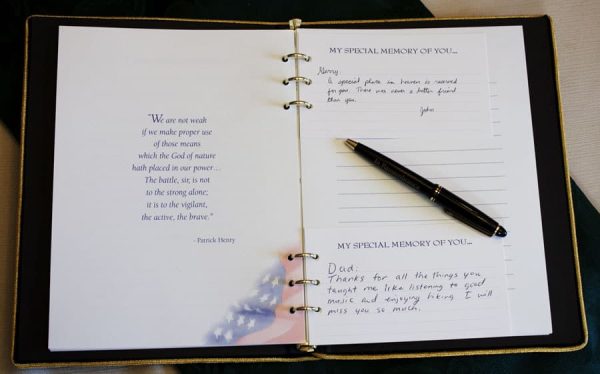 "We are not weak
if we make proper use
of those means
which the God of nature
hath placed in our power…
The battle, sir, is not
to the strong alone;
it is to the vigilant,
the active, the brave."
- Patrick Henry
MY SPECIAL MEMORY OF YOU...
Gerry:
A special place in heaven is reserved
for you. There was never a better friend
than you.
John
MY SPECIAL MEMORY OF YOU...
Dad:
Thanks for all the things you
taught me like listening to good
music and enjoying hiking. I will
miss you so much.